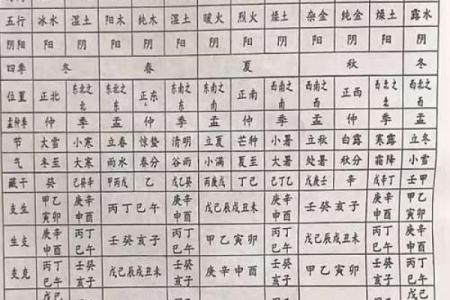 五行 冰水 湿土 阳木 纯木 湿土 暖火 烈火 燥土 杂金 纯金 燥土 露水
阴阳 阳 阴 阳 阴 阳 阴 阳 阴 阳 阴 阳 阴
四季 冬 春 夏 秋 冬
位置 正北 东北之北 东北之东 正东 东南之东 东南之南 正南 西南之南 西南之西 正西 西北之西 西北之北
孟仲季 仲 季 孟 仲 季 孟 仲 季 孟 仲 季 孟
节 大雪 小寒 立春 惊蛰 清明 立夏 芒种 小暑 立秋 白露 寒露 立冬
气 冬至 大寒 雨水 春分 谷雨 小满 夏至 大暑 处暑 秋分 霜降 小雪
藏干 癸 己癸辛 甲丙戊 乙 戊乙癸 丙庚戊 丁己 己乙丁 戊庚壬 辛 戊辛丁 壬甲
支生 甲乙寅卯 庚辛申酉 丙丁巳午 庚辛申酉 戊己辰戌丑未 庚辛申酉 壬癸亥子 庚辛申酉 甲乙寅卯
生支 庚辛申酉 丙丁巳午 壬癸亥子 丙丁巳午 甲乙寅卯 丙丁巳午 戊己辰戌丑未 丙丁巳午 庚辛申酉
支克 丙丁巳午 壬癸亥子 戊己辰戌丑未 壬癸亥子 庚辛申酉 壬癸亥子 甲乙寅卯 壬癸亥子 丙丁巳午
戊己 戊己